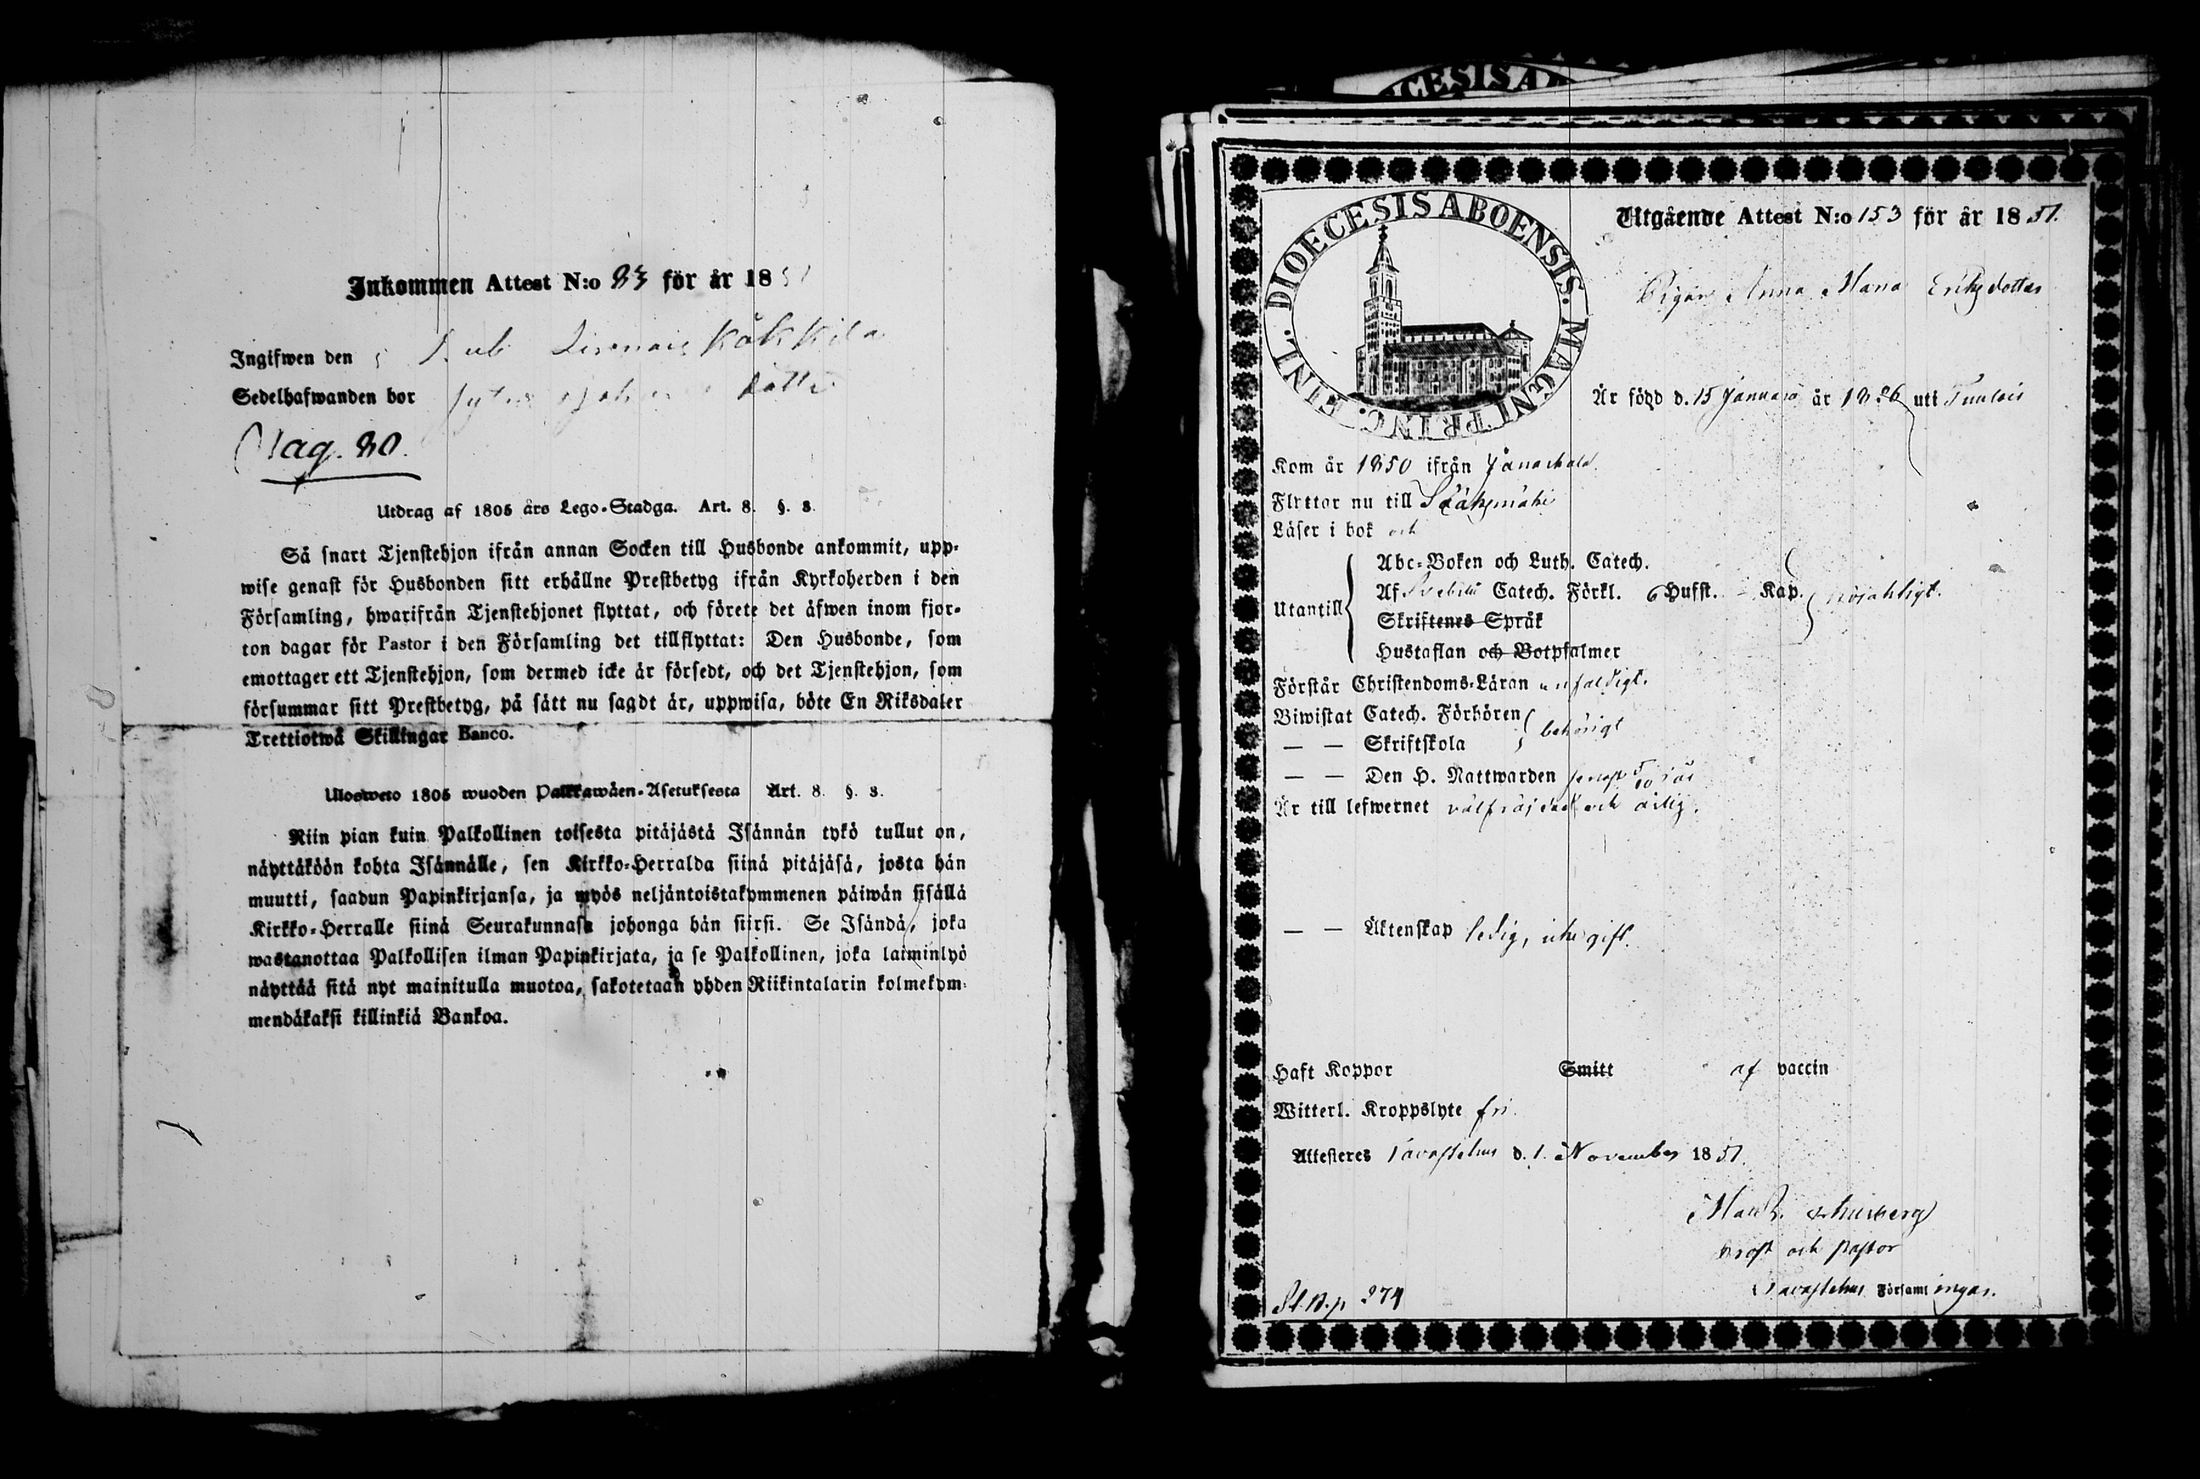 Inkommen Attest N:o 83 för år 1851
Ingifwen den Kåkkila
Sedelhafwanden bor
Pag. 80.
Utdrag af 1805 års Lego-Stadga. Art. 8. §. 8.
Så snart Tjenstehjon ifrån annan Socken till Husbonde ankommit, upp-
wise genast för Husbonden sitt erhållne Prestbetyg ifrån Kyrkoherden i den
Församling, hwarifrån Tjenstehjonet flyttat, och förete det äfwen inom fjor-
ton dagar för Pastor i den Församling det tillflyttat: Den Husbonde, som
emottager ett Tjenstehjon, som dermed icke är försedt, och det Tjenstehjon, som
försummar sitt Prestbetyg, på sätt nu sagdt är, uppwisa, böte En Riksdaler
Trettiotwå Skillingar Banco.
Ulosweto 1805 wuoden Palkkawäen-Asetuksesta Art. 8. §. 8.
Niin pian kuin Palkollinen toisesta pitäjästä Isännän tykö tullut on,
näyttäköön kohta Isännälle, sen Kirkko-Herralda siinä pitäjäsä, josta hän
muutti, saadun Papinkirjansa, ja myös neljäntoistakymmenen päiwän sisällä
Kirkko-Herralle siinä Seurakunnasa johonga hän siirsi. Se Isändä, joka
wastanottaa Palkollisen ilman Papinkirjata, ja se Palkollinen, joka laiminlyö
näyttää sitä nyt mainitulla muotoa, sakotetaan yhden Riikintalarin kolmekym-
mendäkaksi killinkiä Bankoa.
DIOECESIS ABOENSIS. MAGNI PRINC. FINL.
Utgående Attest N:o 153 för år 1851.
Pigan Anna Maria Eriksdotter
Är född d. 15 Januarii år 1826 uti Tuulois
Kom år 1850 ifrån Janackala
Flyttar nu till Sääksmäki
Läser i bok och
Utantill
Abc-Boken och Luth. Catech.
Af Svebilii Catech. Förkl. 6 Hufst. - Kap.
Skriftenes Språk
Hustaflan och Botpsalmer
Förstår Christendoms-Läran enfaldigt.
Biwistat Catech. Förhören behörigt
— — Skriftskola
— — Den H. Nattwarden senast
Är till lefwernet välfräjdad och ärlig.
— — Äktenskap ledig, icke gift.
Haft Koppor Smitt af vaccin
Witterl. Kroppslyte fri.
Attesteres Tavastehus d. 1. November 1851.
Prost och Pastor
Tavastehus Församlingar.
274